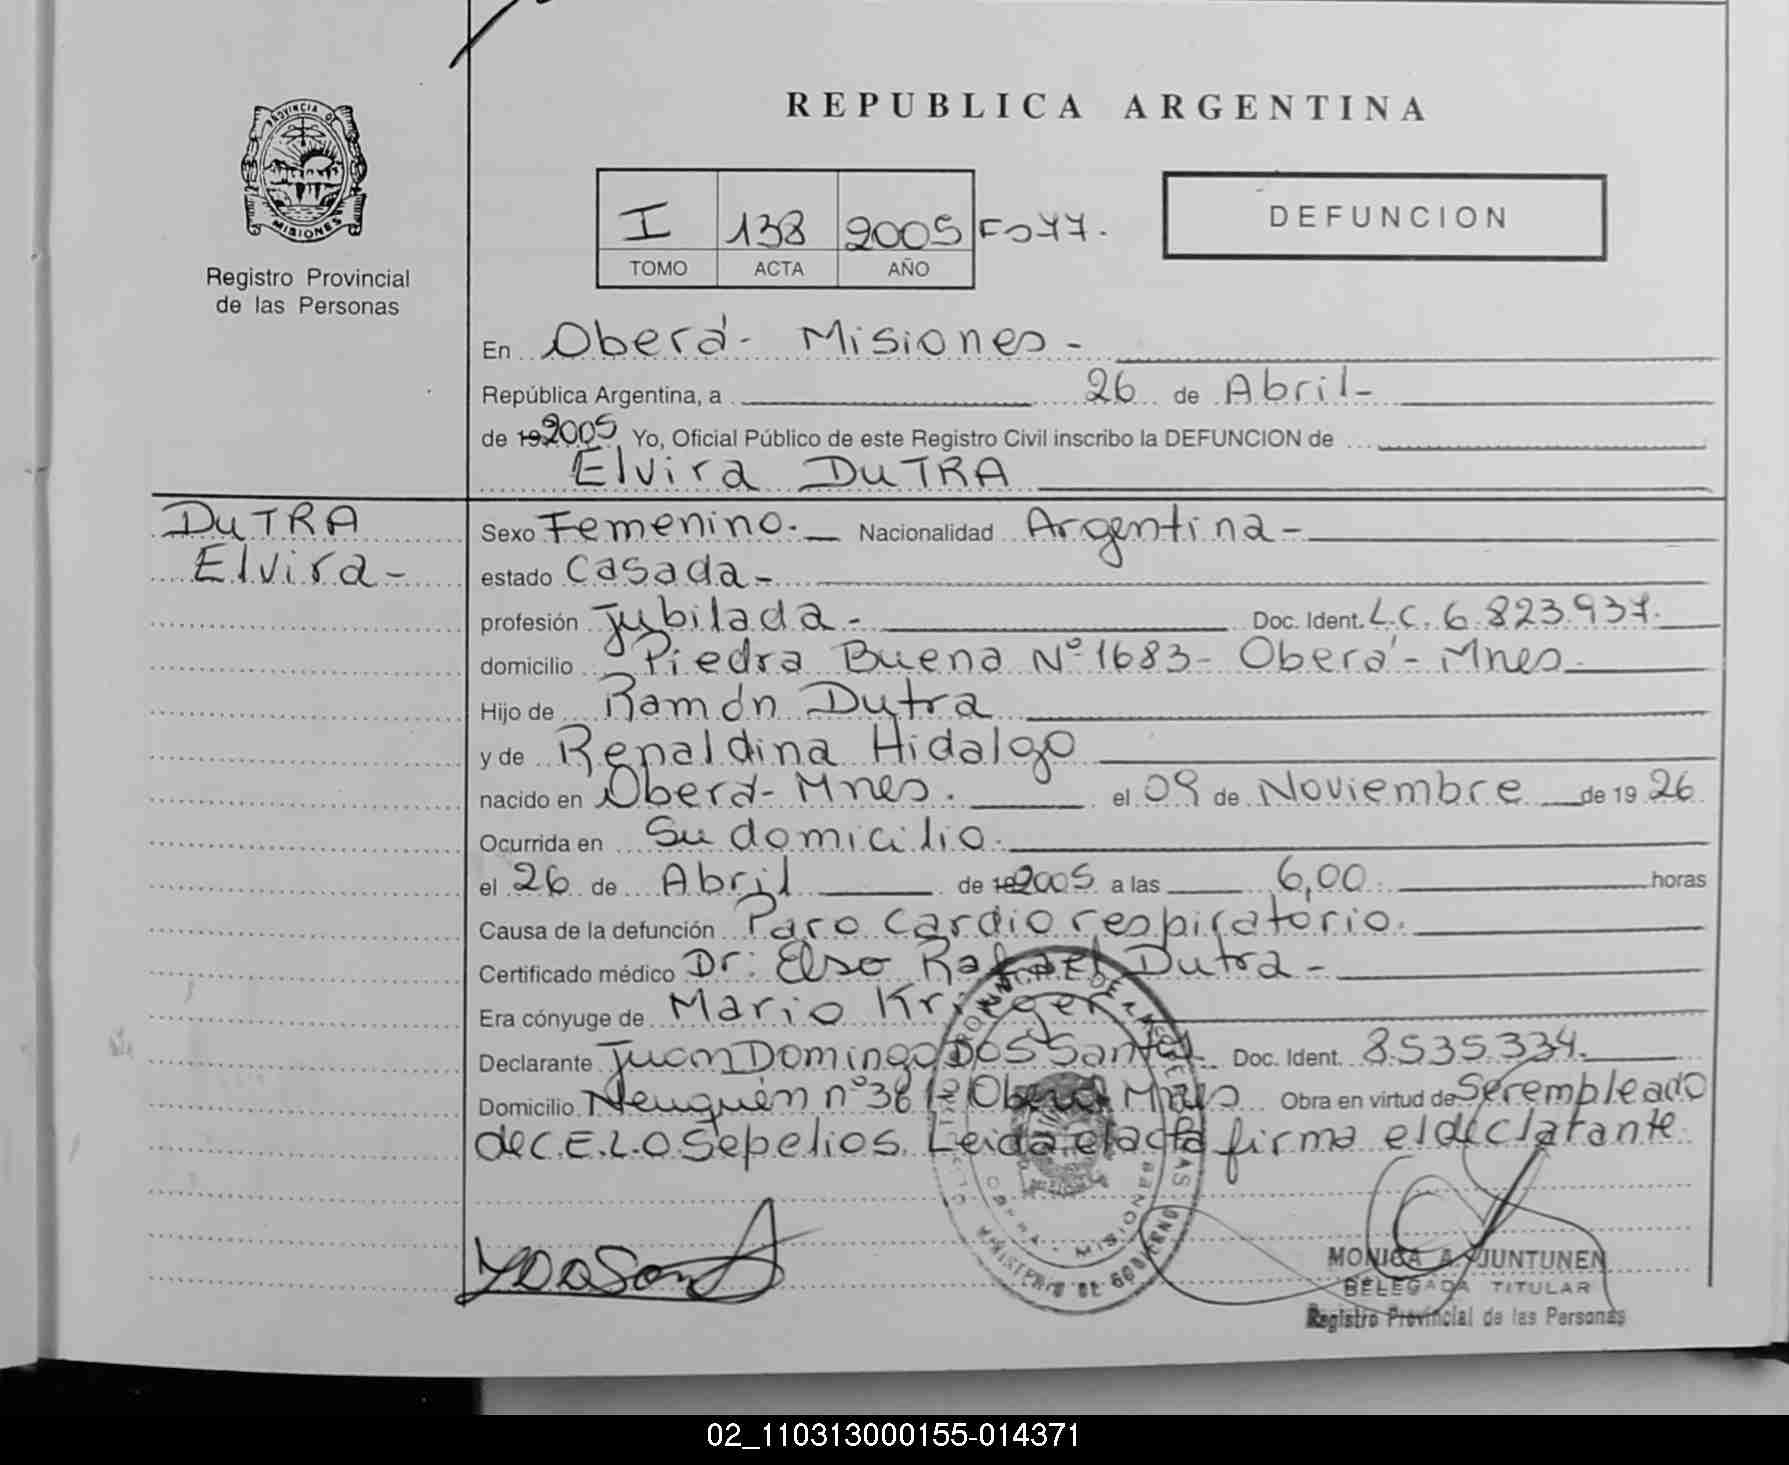 REPUBLICA ARGENTINA
PROVINCIA DE
MISIONES
Registro Provincial
de las Personas
I 138 2005 Fo 77.
TOMO ACTA AÑO
DEFUNCION
En Oberá - Misiones -
República Argentina, a 26 de Abril -
de 19 2005 Yo, Oficial Público de este Registro Civil inscribo la DEFUNCION de
Elvira DUTRA
DUTRA
Elvira -
Sexo Femenino. Nacionalidad Argentina -
estado Casada -
profesión Jubilada - Doc. Ident. L.C. 6.823.937.
domicilio Piedra Buena Nº 1683 - Oberá - Mnes.
Hijo de Ramón Dutra
y de Renaldina Hidalgo
nacido en Oberá - Mnes. el 09 de Noviembre de 19 26
Ocurrida en Su domicilio.
el 26 de Abril de 19 2005 a las 6,00 horas
Causa de la defunción Paro Cardio respiratorio.
Certificado médico Dr: Elso Rafael Dutra -
Era cónyuge de Mario
Declarante Juan Domingo Dos Santos Doc. Ident. 8.535.334.
Domicilio Neuquén nº Oberá Mnes Obra en virtud de Ser empleado
de C.E.L.O Sepelios. Leida el acta firma el declarante
MONICA A. JUNTUNEN
DELEGADA TITULAR
Registro Provincial de las Personas
02_110313000155-014371